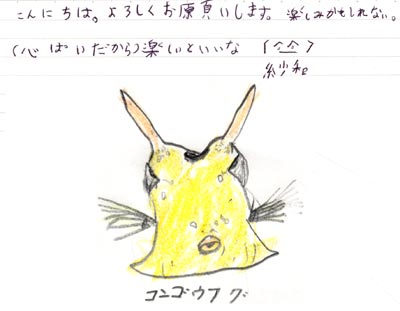 こんにちは。よろしくお願いします。楽しみかもしれない。
(心ぱいだから)楽しいといいな (^_^)
紗和
コンゴウフグ